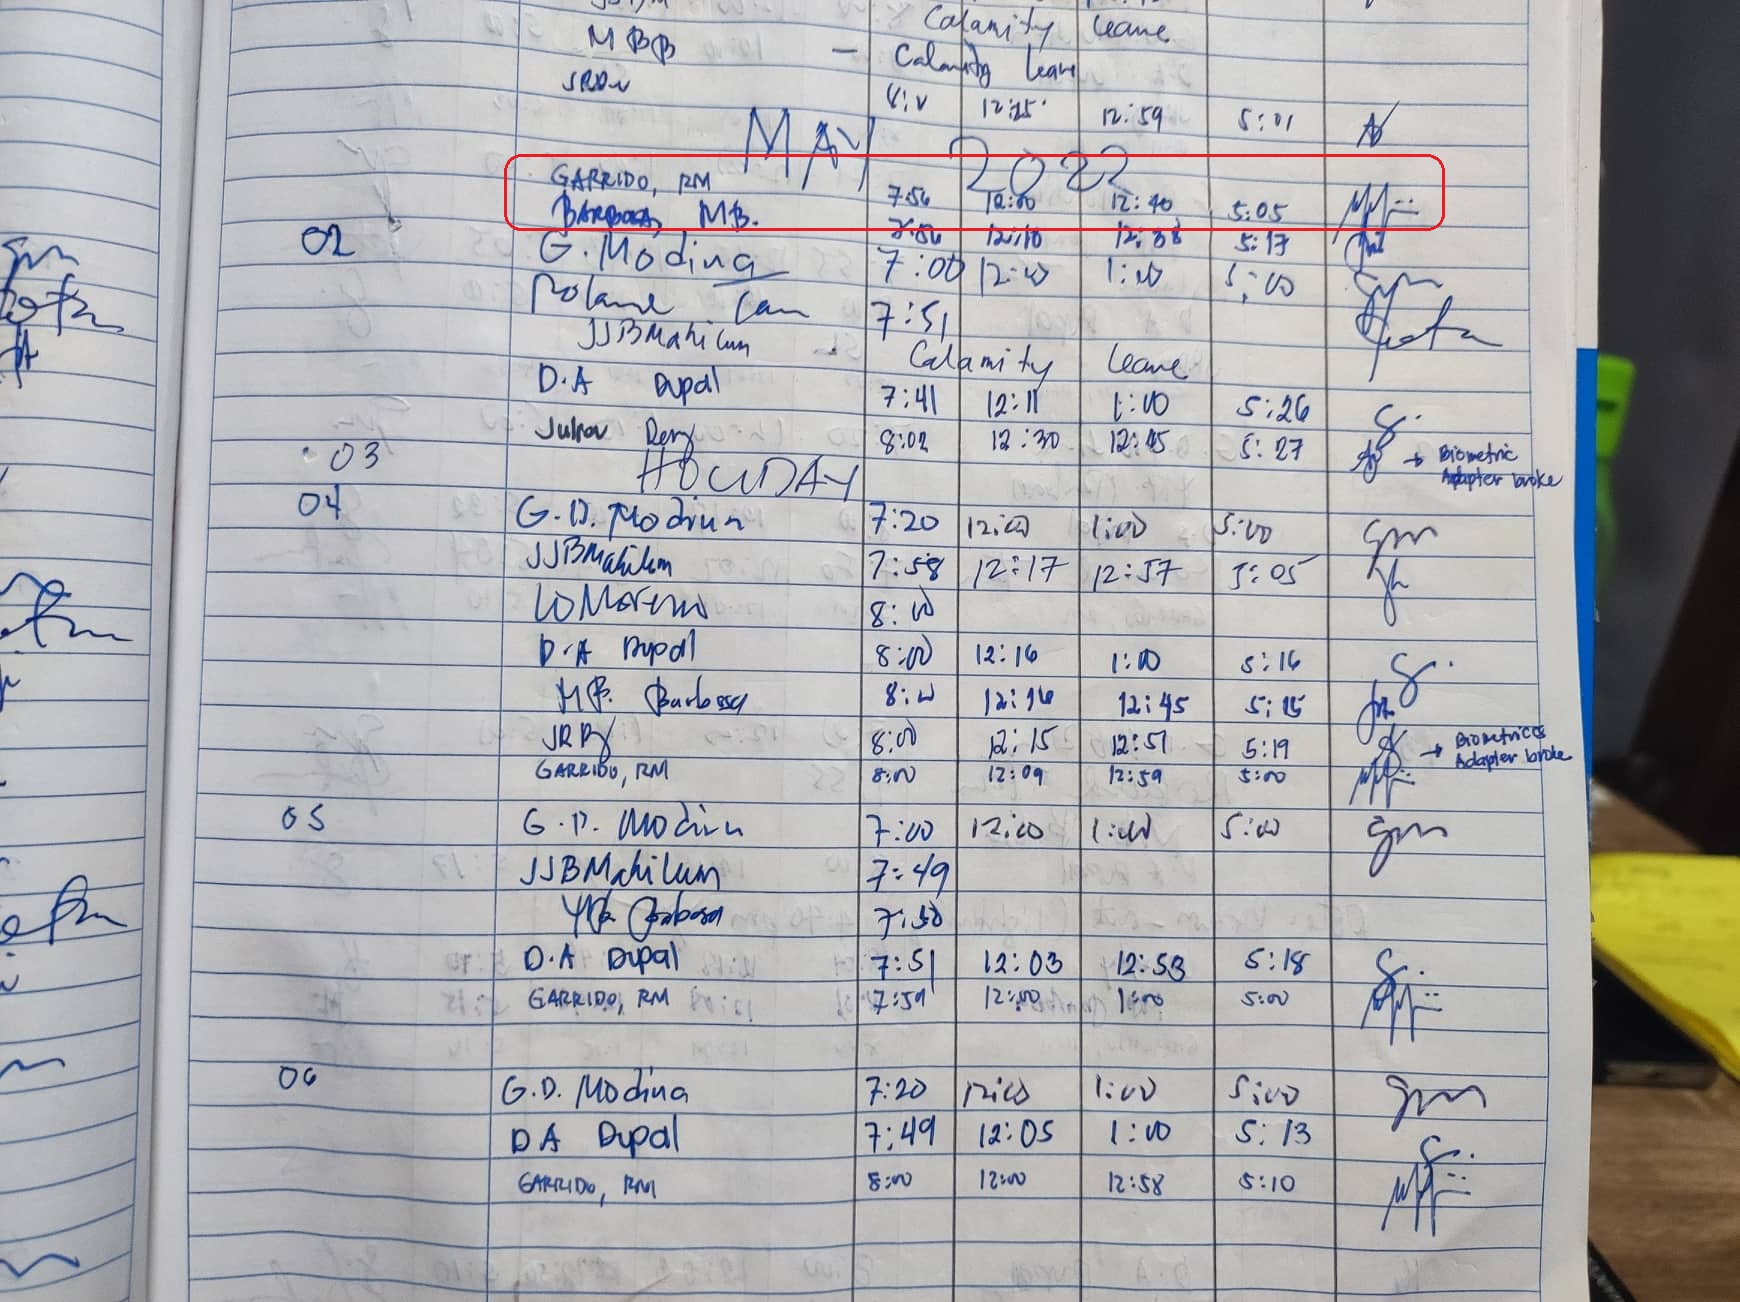 Calamity Leave
MBB — Calamity Leave
12:25 12:59 5:01
MAY 2022
GARRIDO, RM 7:56 12:00 12:40 5:05
BARBOSA, MB. 7:56 12:10 12:38 5:17
02 G. Modina 7:00 12:00 1:00 5:00
7:51
JJBMahilum Calamity Leave
D.A Dupal 7:41 12:11 1:00 5:26
8:02 12:30 12:45 5:27 → Biometric
Adapter broke
03 HOLIDAY
04 G.D. Modina 7:20 12:00 1:00 5:00
JJBMahilum 7:58 12:17 12:57 5:05
LO Moreno 8:00
D.A Dupal 8:00 12:16 1:00 5:16
MB. Barbosa 8:00 12:16 12:45 5:15
8:00 12:15 12:51 5:19 → Biometrics
Adapter broke
GARRIDO, RM 8:00 12:09 12:59 5:00
05 G.D. Modina 7:00 12:00 1:00 5:00
JJBMahilum 7:49
Barbosa 7:50
D.A Dupal 7:51 12:03 12:53 5:18
GARRIDO, RM 7:59 12:00 1:00 5:00
06 G.D. Modina 7:20 12:00 1:00 5:00
DA Dupal 7:49 12:05 1:00 5:13
GARRIDO, RM 8:00 12:00 12:58 5:10